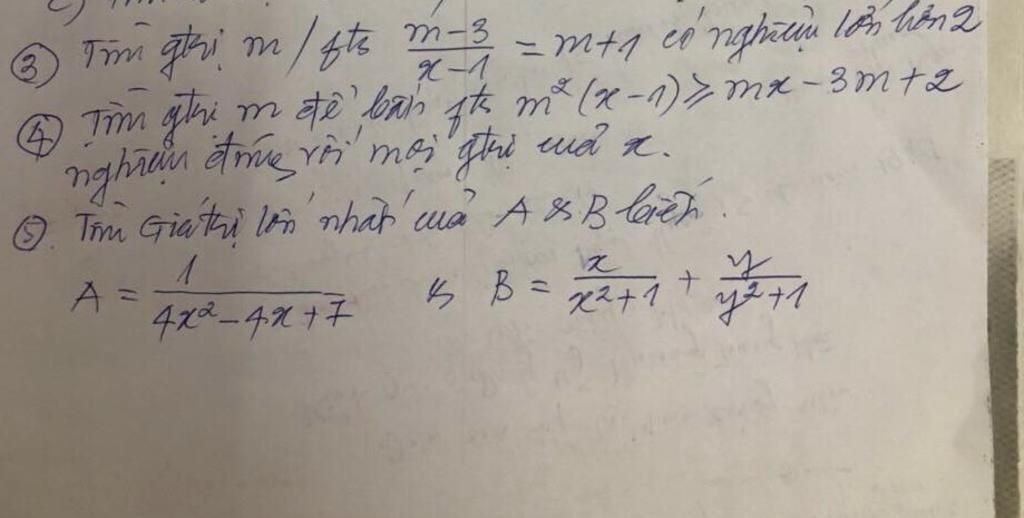 ③ Tìm gtrị m / ptr (m-3)/(x-1) = m+1 có nghiệm lớn hơn 2
④ Tìm gtrị m để bất ptr m²(x-1) ≥ mx - 3m + 2
nghiệm đúng với mọi gtrị của x.
⑤. Tìm Giá trị lớn nhất của A & B biết.
A = 1/(4x² - 4x + 7) & B = x/(x²+1) + y/(y²+1)